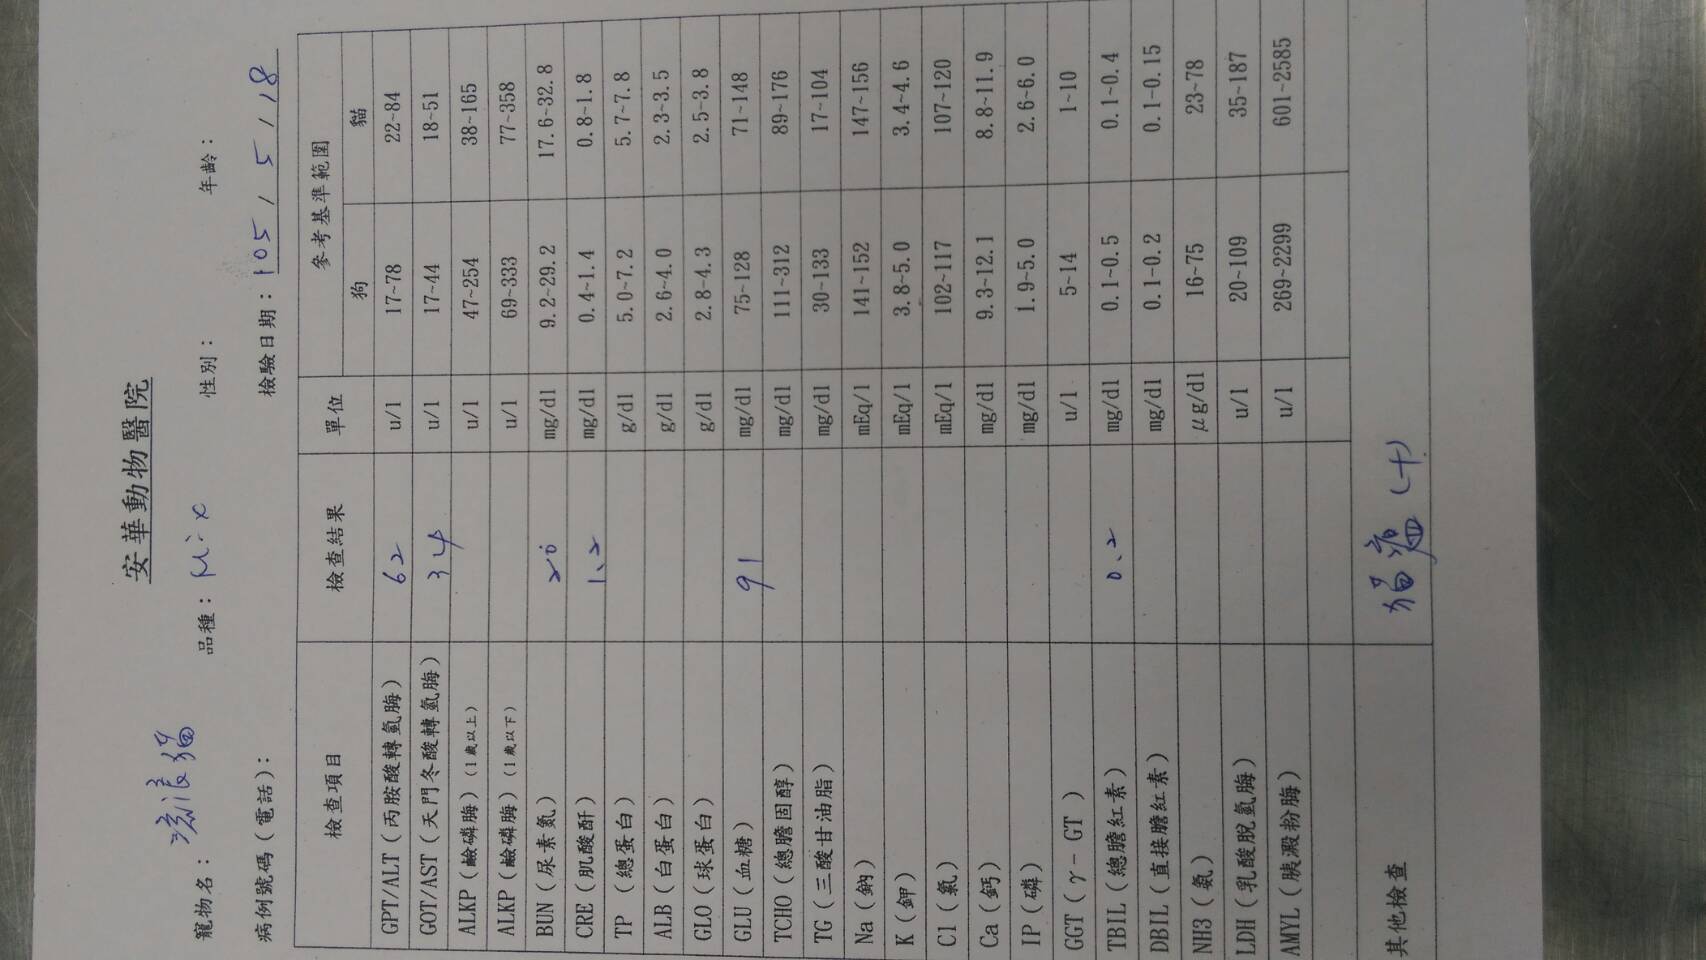 安華動物醫院
寵物名：流浪貓 品種：Mix 性別： 年齡：
病例號碼（電話）： 檢驗日期：105 / 5 / 18
檢查項目 檢查結果 單位 參考基準範圍
狗 貓
GPT/ALT（丙胺酸轉氨脢） 62 u/l 17~78 22~84
GOT/AST（天門冬酸轉氨脢） 34 u/l 17~44 18~51
ALKP（鹼磷脢）(1歲以上) u/l 47~254 38~165
ALKP（鹼磷脢）(1歲以下) u/l 69~333 77~358
BUN（尿素氮） 20 mg/dl 9.2~29.2 17.6~32.8
CRE（肌酸酐） 1.2 mg/dl 0.4~1.4 0.8~1.8
TP （總蛋白） g/dl 5.0~7.2 5.7~7.8
ALB（白蛋白） g/dl 2.6~4.0 2.3~3.5
GLO（球蛋白） g/dl 2.8~4.3 2.5~3.8
GLU（血糖） 91 mg/dl 75~128 71~148
TCHO（總膽固醇） mg/dl 111~312 89~176
TG（三酸甘油脂） mg/dl 30~133 17~104
Na（鈉） mEq/l 141~152 147~156
K（鉀） mEq/l 3.8~5.0 3.4~4.6
Cl（氯） mEq/l 102~117 107~120
Ca（鈣） mg/dl 9.3~12.1 8.8~11.9
IP（磷） mg/dl 1.9~5.0 2.6~6.0
GGT（γ-GT） u/l 5~14 1~10
TBIL（總膽紅素） 0.2 mg/dl 0.1~0.5 0.1~0.4
DBIL（直接膽紅素） mg/dl 0.1~0.2 0.1~0.15
NH3（氨） μg/dl 16~75 23~78
LDH（乳酸脫氫脢） u/l 20~109 35~187
AMYL（胰澱粉脢） u/l 269~2299 601~2585
其他檢查 貓瘟 (+)